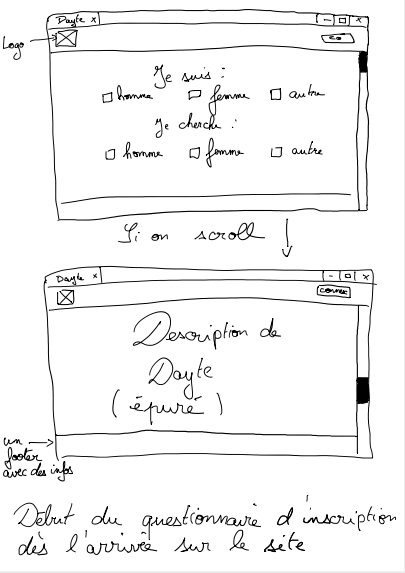 Dayte x
- □ x
Logo
co
Je suis :
homme femme autre
Je cherche :
homme femme autre
Si on scroll
Dayte x
- □ x
connex
Description de
Dayte
( épuré )
un
footer
avec des infos
Début du questionnaire d'inscription
dès l'arrivée sur le site